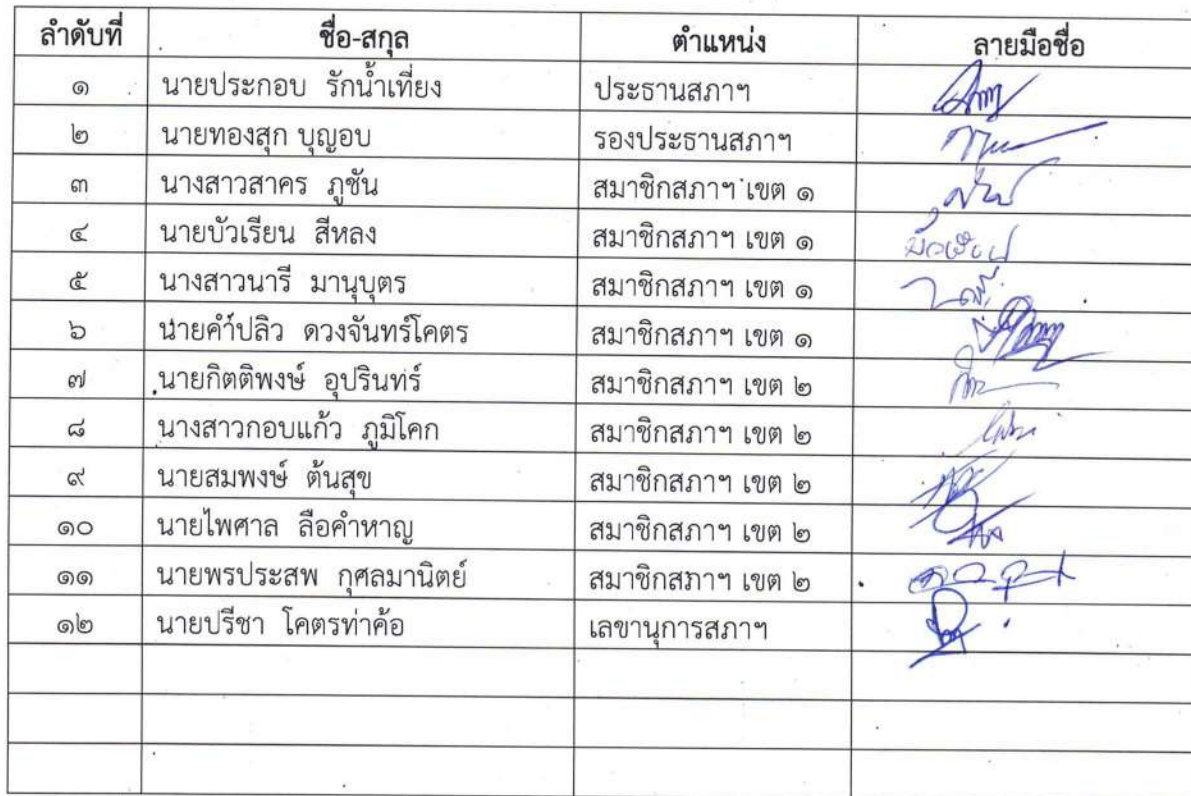 ลำดับที่ ชื่อ-สกุล ตำแหน่ง ลายมือชื่อ
๑ นายประกอบ รักน้ำเที่ยง ประธานสภาฯ
๒ นายทองสุก บุญอบ รองประธานสภาฯ
๓ นางสาวสาคร ภูชัน สมาชิกสภาฯ เขต ๑
๔ นายบัวเรียน สีหลง สมาชิกสภาฯ เขต ๑
๕ นางสาวนารี มานุบุตร สมาชิกสภาฯ เขต ๑
๖ นายคำปลิว ดวงจันทร์โคตร สมาชิกสภาฯ เขต ๑
๗ นายกิตติพงษ์ อุปรินทร์ สมาชิกสภาฯ เขต ๒
๘ นางสาวกอบแก้ว ภูมิโคก สมาชิกสภาฯ เขต ๒
๙ นายสมพงษ์ ต้นสุข สมาชิกสภาฯ เขต ๒
๑๐ นายไพศาล ลือคำหาญ สมาชิกสภาฯ เขต ๒
๑๑ นายพรประสพ กุศลมานิตย์ สมาชิกสภาฯ เขต ๒
๑๒ นายปรีชา โคตรท่าค้อ เลขานุการสภาฯ